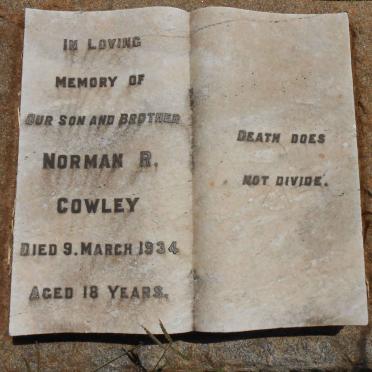 In Loving
Memory of
Our Son and Brother
Norman R.
Cowley
Died 9. March 1934
Aged 18 Years.
Death does
not divide.